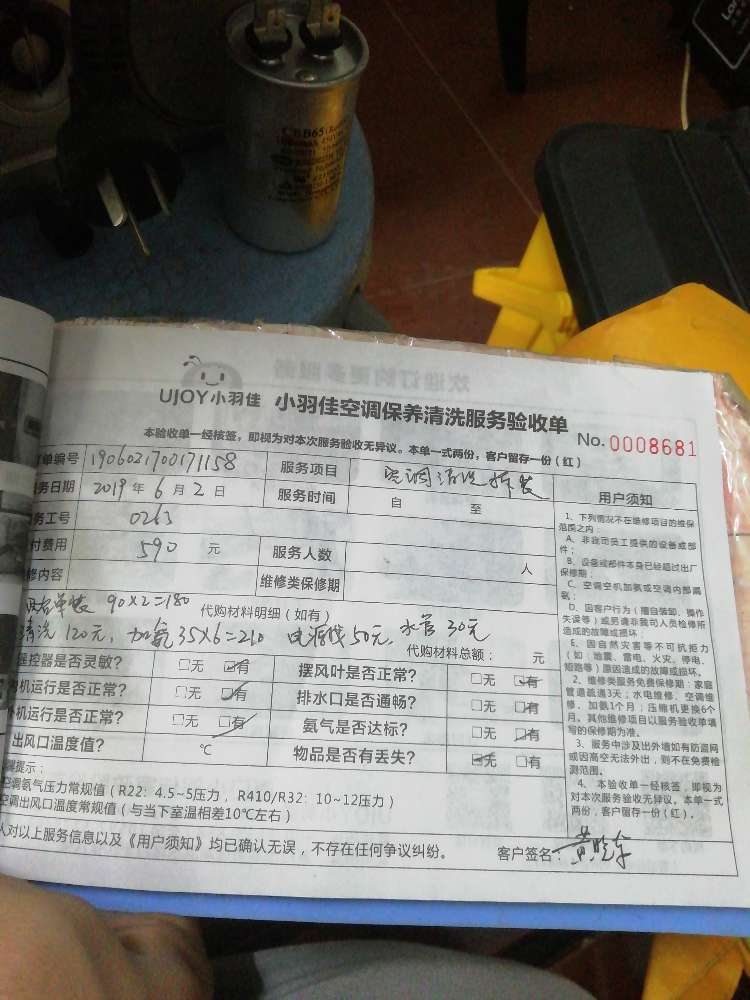 CBB65
UJOY小羽佳 小羽佳空调保养清洗服务验收单
No. 0008681
本验收单一经核签，即视为对本次服务验收无异议。本单一式两份，客户留存一份（红）
单编号 190602170017​1158 服务项目 空调清洗拆装
务日期 2019年6月2日 服务时间 自 至
务工号 0263
付费用 590 元 服务人数 人
修内容 维修类保修期
单装 90X2=180 代购材料明细（如有）
清洗120元，加氨35X6=210 电源线50元，水管30元
代购材料总额： 元
遥控器是否灵敏？ □无 □有 摆风叶是否正常？ □无 □有
机运行是否正常？ □无 □有 排水口是否通畅？ □无 □有
机运行是否正常？ □无 □有 氨气是否达标？ □无 □有
出风口温度值？ ℃ 物品是否有丢失？ □无 □有
提示：
空调氨气压力常规值（R22：4.5~5压力，R410/R32：10~12压力）
空调出风口温度常规值（与当下室温相差10℃左右）
人对以上服务信息以及《用户须知》均已确认无误，不存在任何争议纠纷。 客户签名：
用户须知
1、下列情况不在维修项目的维保
范围之内：
A、非我司员工提供的设备或部
件；
B、设备或部件本身已经超过出厂
保修期；
C、空调空机加氨或空调内部漏
氨；
D、因客户行为（擅自装卸、操作
失误等）或另请非我司人员检修所
造成的故障或损坏；
E、因自然灾害等不可抗拒力
（如：地震、雷电、火灾、停电、
短路等）原因造成的故障或损坏。
2、维修类服务免费保修期：家庭
管道疏通3天；水电维修、空调维
修、加氨1个月；压缩机更换6个
月。其他维修项目以服务验收单填
写的保修期为准。
3、服务中涉及出外墙如有防盗网
或因高空无法外出，则不在免费检
测范围。
4、本验收单一经核签，即视为
对本次服务验收无异议。本单一式
两份，客户留存一份（红）。